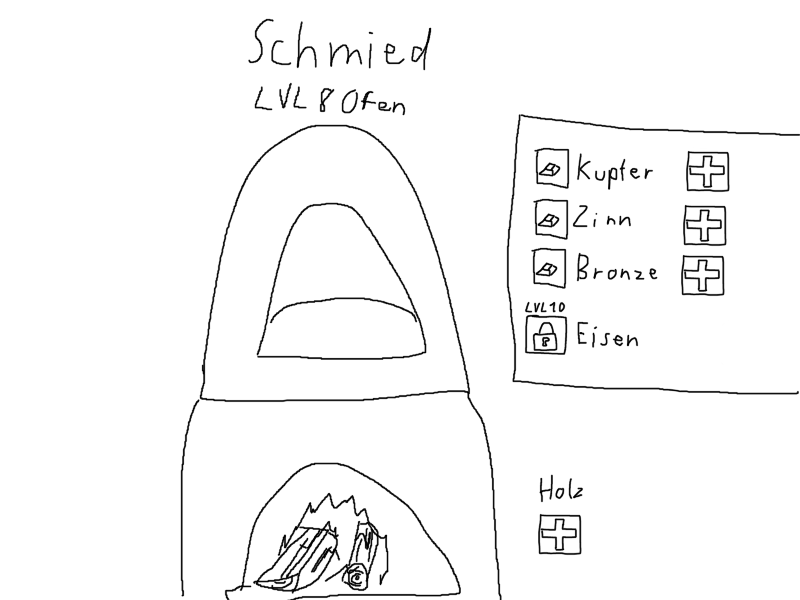 Schmied
LVL 8 Ofen
Kupfer
Zinn
Bronze
LVL10
Eisen
Holz